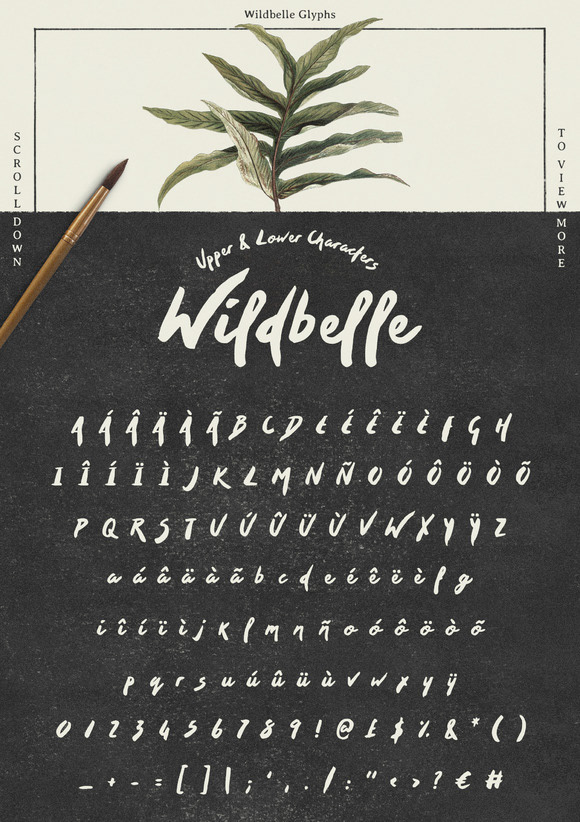 Wildbelle Glyphs
SCROLL DOWN
TO VIEW MORE
Upper & Lower Characters
Wildbelle
A Á Â Ä À Ã B C D E É Ê Ë È F G H
I Î Í Ï Ì J K L M N Ñ O Ó Ô Ö Ò Õ
P Q R S T U Ú Û Ü Ù V W X Y Ÿ Z
a á â ä à ã b c d e é ê ë è f g
i î í ï ì j k l m n ñ o ó ô ö ò õ
p q r s u ú û ü ù v w x y ÿ
0 1 2 3 4 5 6 7 8 9 ! @ £ $ % & * ( )
_ + - = [ ] \ ; ' , . / : " < > ? € #